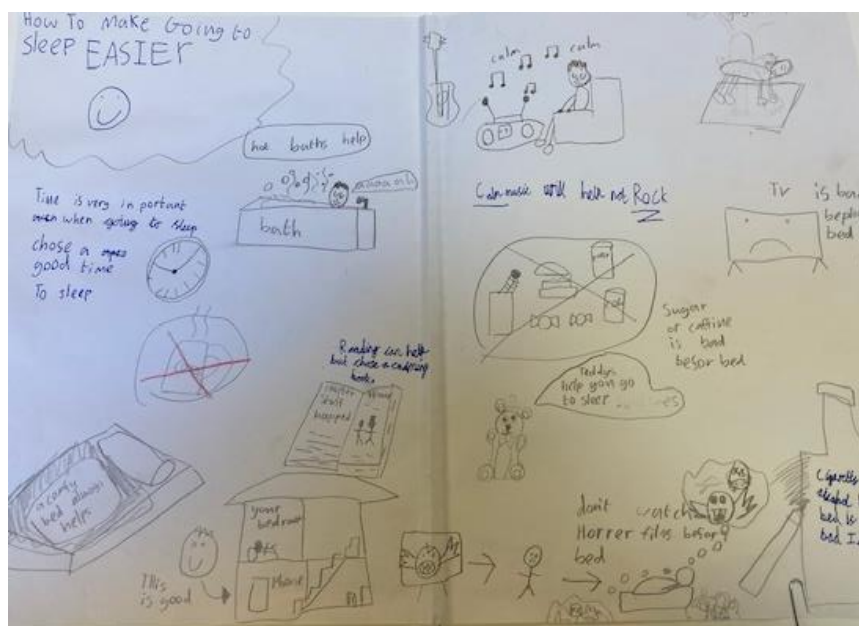 How To Make Going to
Sleep EASIER
hot baths help
aaaaah
bath
Time is very in portant
when going to sleep
chose a
good time
To sleep
Reading can help
but chose a
book.
happend
a comfy
bed always
helps
your
bedroom
Phone
This
is good
calm
calm
Calm music will help not Rock
TV is
bed
Sugar
or caffine
is bad
befor bed
Teddys
help you go
to sleep
don't watch
Horrer films befor
bed
bed is
bad